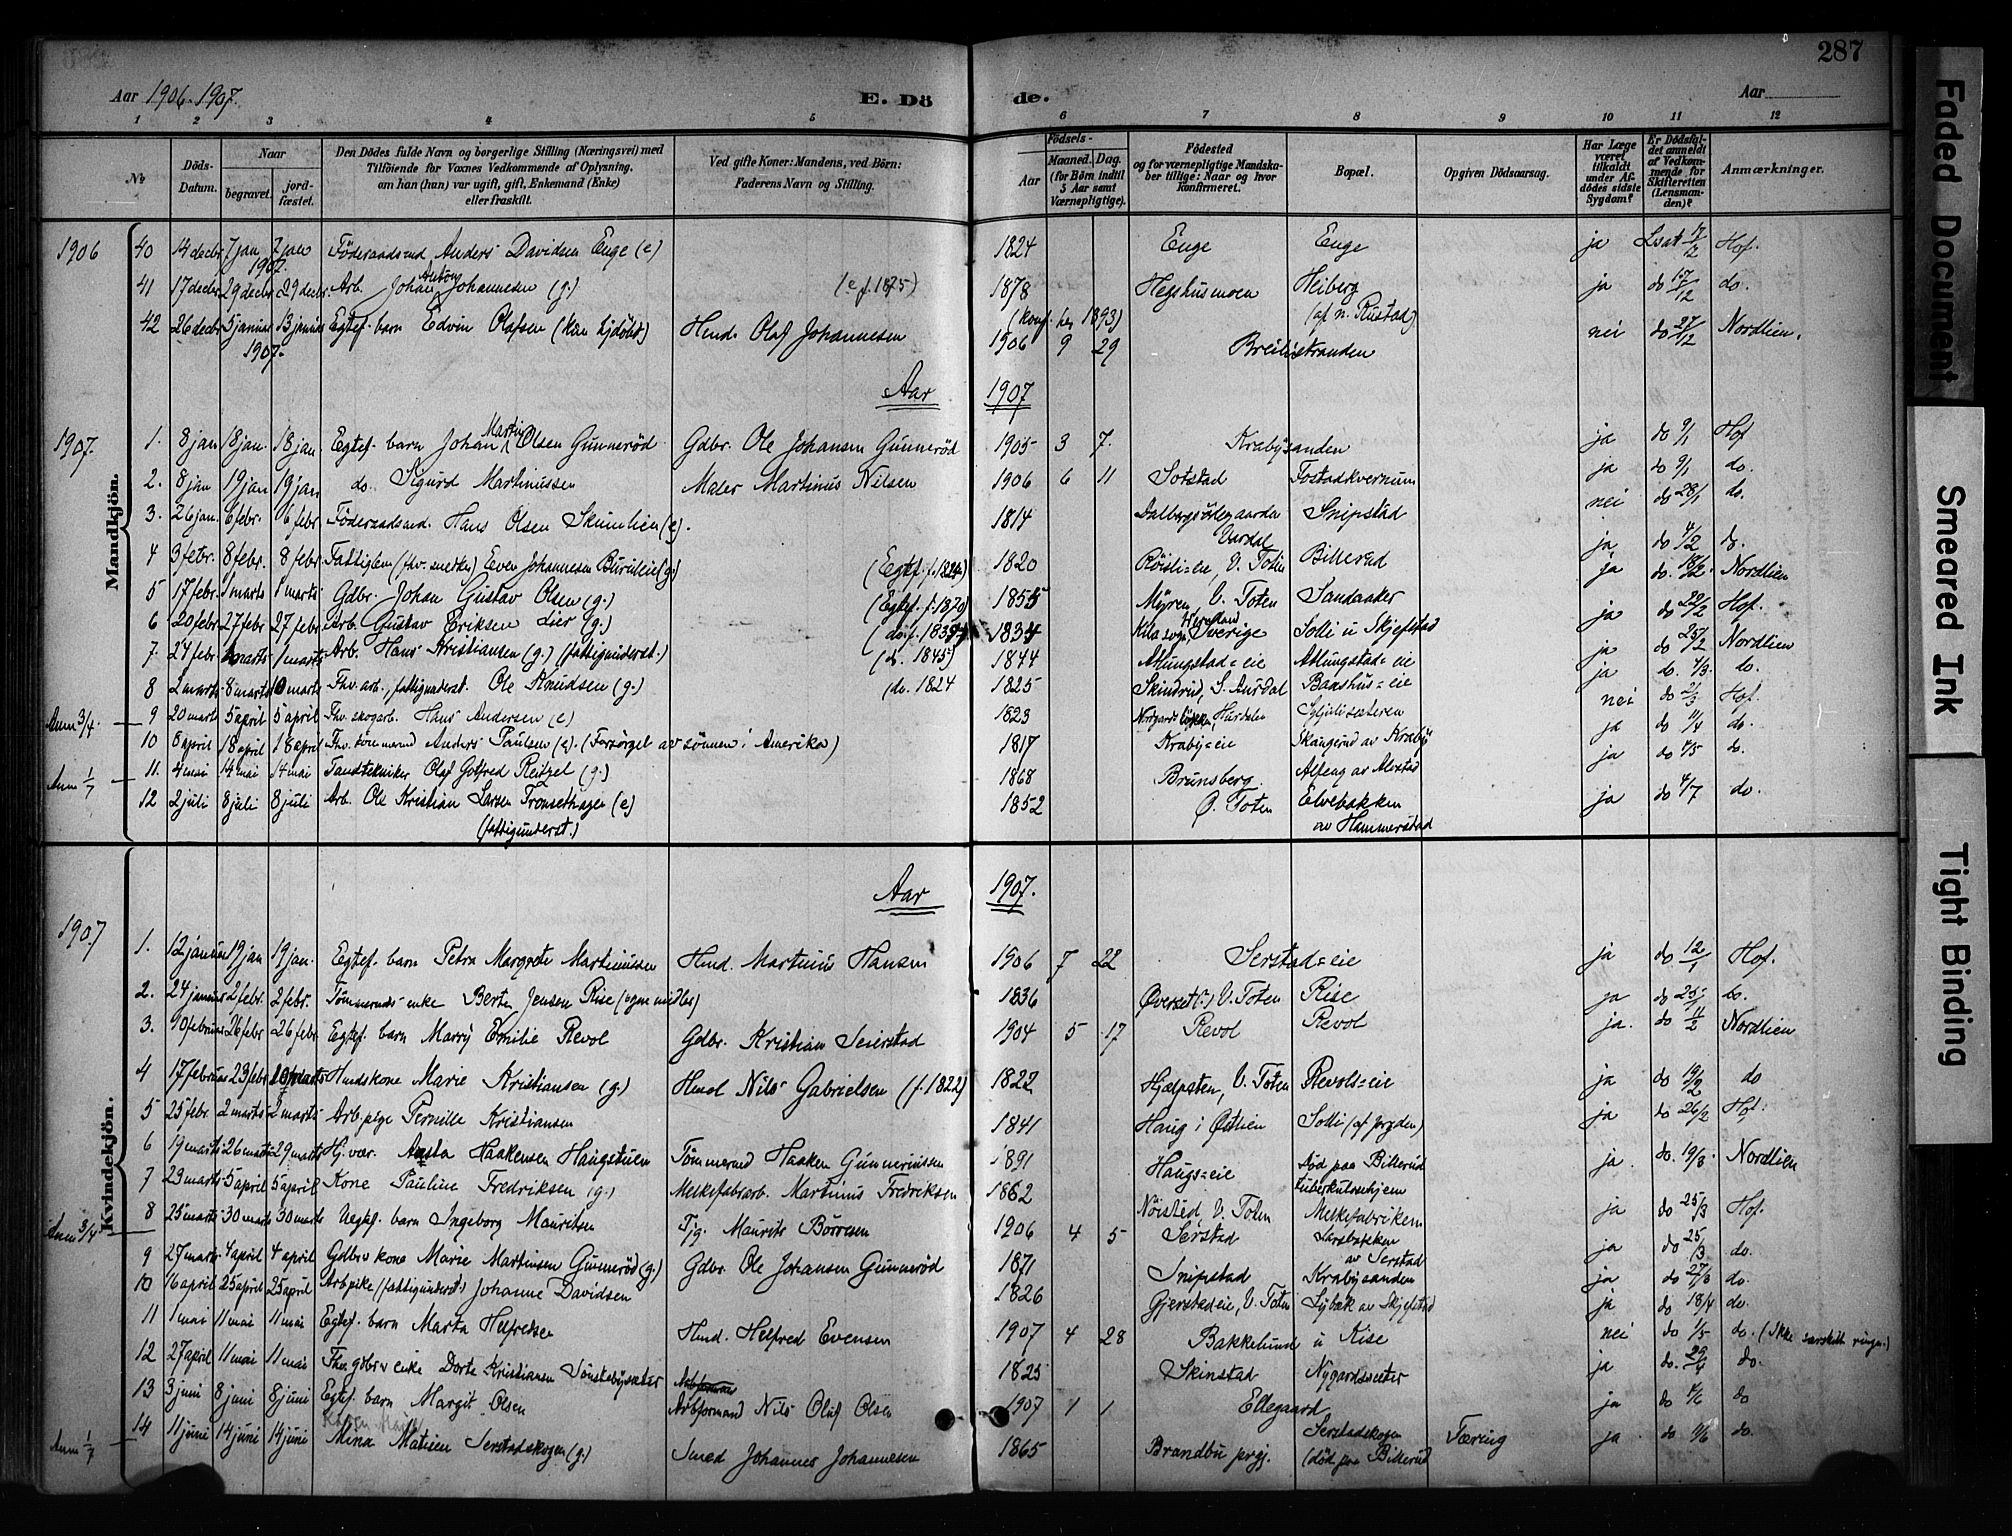 287
Aar 1906-1907.
E. Dö
de.
Aar
1 2 3 4 5 6 7 8 9 10 11 12
№
Döds-Datum.
Naar
begravet.
jord-fæstet.
Den Dödes fulde Navn og borgerlige Stilling (Næringsvei) med
Tilföiende for Voxnes Vedkommende af Oplysning,
om han (hun) var ugift, gift, Enkemand (Enke)
eller fraskilt.
Ved gifte Koner: Mandens, ved Börn:
Faderens Navn og Stilling.
Födsels-
Aar
Maaned. Dag.
(for Börn indtil
5 Aar samt
Værnepligtige).
Födested
og for værnepligtige Mandska-
ber tillige: Naar og hvor
Konfirmeret.
Bopæl.
Opgiven Dödsaarsag.
Har Læge
været
tilkaldt
under Af-
dödes sidste
Sygdom?
Er Dödsfal-
det anmeldt
af Vedkom-
mende for
Skifteretten
(Lensman-
den)?
Anmærkninger.
Mandkjön.
1906 40 14 decbr 7 jan 1907. 7 jan Föderaadsmd Anders Davidsen Enge (e) 1824 Enge Enge ja Lsat Hof.
41 17 decbr 29 decbr. 29 decbr. Arb. Johan Anton Johannesen (g.) (e f. 1875) 1878 Hegshusmoen Heiberg ja do 17/12 do.
(konf. her 1893) (af n. Rustad)
42 26 decbr 5 januar 1907. 13 januar Egtef. barn Edvin Olafsen (kun hjdöbt) Hmd. Olaf Johannesen 1906 9 29 Breilistranden nei do 27/12 Nordlien.
Aar 1907
1907. 1. 8 jan 18 jan. 18 jan Egtef. barn Johan Martin Olsen Gunneröd Gdbr. Ole Johansen Gunneröd 1905 3 7. Krabysanden ja do 9/1 Hof
2. 8 jan 19 jan 19 jan do. Sigurd Martinussen Maler Martinus Nilsen 1906 6 11 Sotstad Fostadkvernum ja do 9/1 do.
3. 26 jan. 6 febr. 6 febr. Föderaadsmd. Hans Olsen Skumlien (e). 1814 Dalbergsödegaarden Vardal Snipstad nei do 28/1 do.
4 3 febr. 8 febr. 8 febr Fattiglem (fhv. smed) Even Johannesen Burulieie (g) (Egtef. f. 1824) 1820 Röisli=eie, V. Toten Billerud ja do 4/2 do.
5 17 febr 1 marts 1 marts Gdbr. Johan Gustav Olsen (g.) (Egtef. f. 1870) 1855 Myren, V. Toten Sandaaker ja do. 18/2 Nordlien
6 20 febr 27 febr 27 febr Arb. Gustav Eriksen Lier (g.) 1834 Kila sogn, Vermland Sverige Solli u Skjefstad ja do 22/2 Hof.
7. 24 febr 1 marts 1 marts Arb. Hans Kristiansen (g.) (fattigunderst.) (do. 1845) 1844 Alungstad=eie Alungstad=eie ja do 25/2 Nordlien
8 2 marts 8 marts 10 marts Fhv. arb., fattigunderst. Ole Knudsen (g.) (do. 1824 1825 Skindrud, S. Aurdal Baashus=eie ja do. 4/3. do.
9 20 mart 5 april 5 april Fhv. skogarb. Hans Andersen (e) 1823 Hurdalen nei do Hof.
Anm 3/4.
10 8 april 18 april 18 april Fhv. tömmermd Anders Paulsen (e). (Forsörget av sönnen i Amerika) 1817 Kraby=eie Skaugerud av Kraby ja do 11/4 do.
11. 4 mai 14 mai 14 mai Tandtekniker Olaf Gotfred Reitzel (g.) 1868 Brunsberg. ja do 4/5 do.
Anm 1/7
12 2 juli 8 juli 8 juli Arb. Ole Kristian Larsen Tronsethagen (e) (fattigunderst.) 1852 Ø. Toten Elvebakken av Hammerstad ja do 4/7 do.
Kvindekjön.
Aar 1907.
1907 1. 12 januar 19 jan 19 jan. Egtef. barn Petra Margrete Martinussen Hmd. Martinus Hansen 1906 7 22 Serstad=eie ja do 12/1 Hof.
2. 24 januar 2 febr. 2 febr. Tömmermds enke Berte Jensen Rise (egne midler) 1836 Øverset (?) V. Toten Rise ja do 25/1 do.
3. 9 februar 26 febr 26 febr Egtef. barn Marry Emilie Revol Gdbr. Kristian Seierstad 1904 5 17 Revol Revol ja. do 11/2 Nordlien
4 17 februar 23 febr 10 marts Hmdskone Marie Kristiansen (g.) Hmd Nils Gabrielsen (f. 1822) 1822 Hjælpsten, V. Toten Revols=eie ja do 19/2 do
5 25 febr. 2 marts 2 marts Arb. pige Pernille Kristiansen 1841 Haug i Østlien Solli (af Prgden) ja do 26/2 Hof.
6 19 marts 26 marts 29 marts Hj. vær. Hakensen Haugstuen Tömmermd Haaken Gunnerinssen 1891 Haugs=eie död paa Billerud Tuberkulosehjem ja. do. 19/3. Nordlien
7 23 marts 5 april 5 april Kone Pauline Fredriksen (g.) Melkefabrarb. Martinus Fredriksen 1862 Nöisted V. Toten Melkefabriken ja do 25/3 Hof.
8 25 marts 30 marts 30 marts Uegtef. barn Ingeborg Mauritsen Tjg. Maurits Börresen 1906 4 5 Serstad av Serstad ja do 25/3 do.
Anm 3/4
9 27 marts 4 april 4 april Gdbrv kone Marie Martinsen Gunneröd (g.) Gdbr. Ole Johansen Gunneröd 1871 Snipstad Krabysanden ja do 27/3 do.
10 16 april 25 april 25 april Arb. pike (fattigunderst) Johanne Davidsen 1826 Gjerstadeie, V. Toten Lybæk av Skjefstad ja do 18/4 do.
11 1 mai 11 mai 11 mai Egtef. barn Marta Helfredsen Hmd. Helfred Evensen 1907 4 28 Bakkelund u Rise nei do 1/5 do. (Ikke særskilt ringn.)
12 27 april 11 mai 11 mai Fhv. gdbrv enke Dorte Kristiansen Sönstebysæter 1825 Skinstad Nygardssæter ja do. 29/4 do.
13 3 juni 8 juni 8 juni Egtef. barn Margit Olsen Arbformand Nils Oluf Olsen 1907 1 1 Ellegaard ja do 4/6 do
14 11 juni 14 juni 14 juni Karen Marie Mina Matisen Serstadskogen (g.) Smed Johannes Johannesen 1865 Brandbu prgj. Serstadskogen (död paa Billerud Tæring ja. do 11/6 do.
Anm 1/7
Faded Document
Smeared Ink
Tight Binding